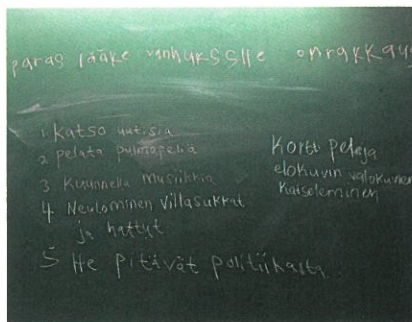 paras lääke vanhukselle on rakkaus
1. Katso uutisia
2 pelata pulmapeliä
3 Kuunnella musiikkia
4 Neulominen villasukkat
ja hattut
5 He pitävät politiikasta
Kortti peleja
elokuvin valokuvien
Katseleminen